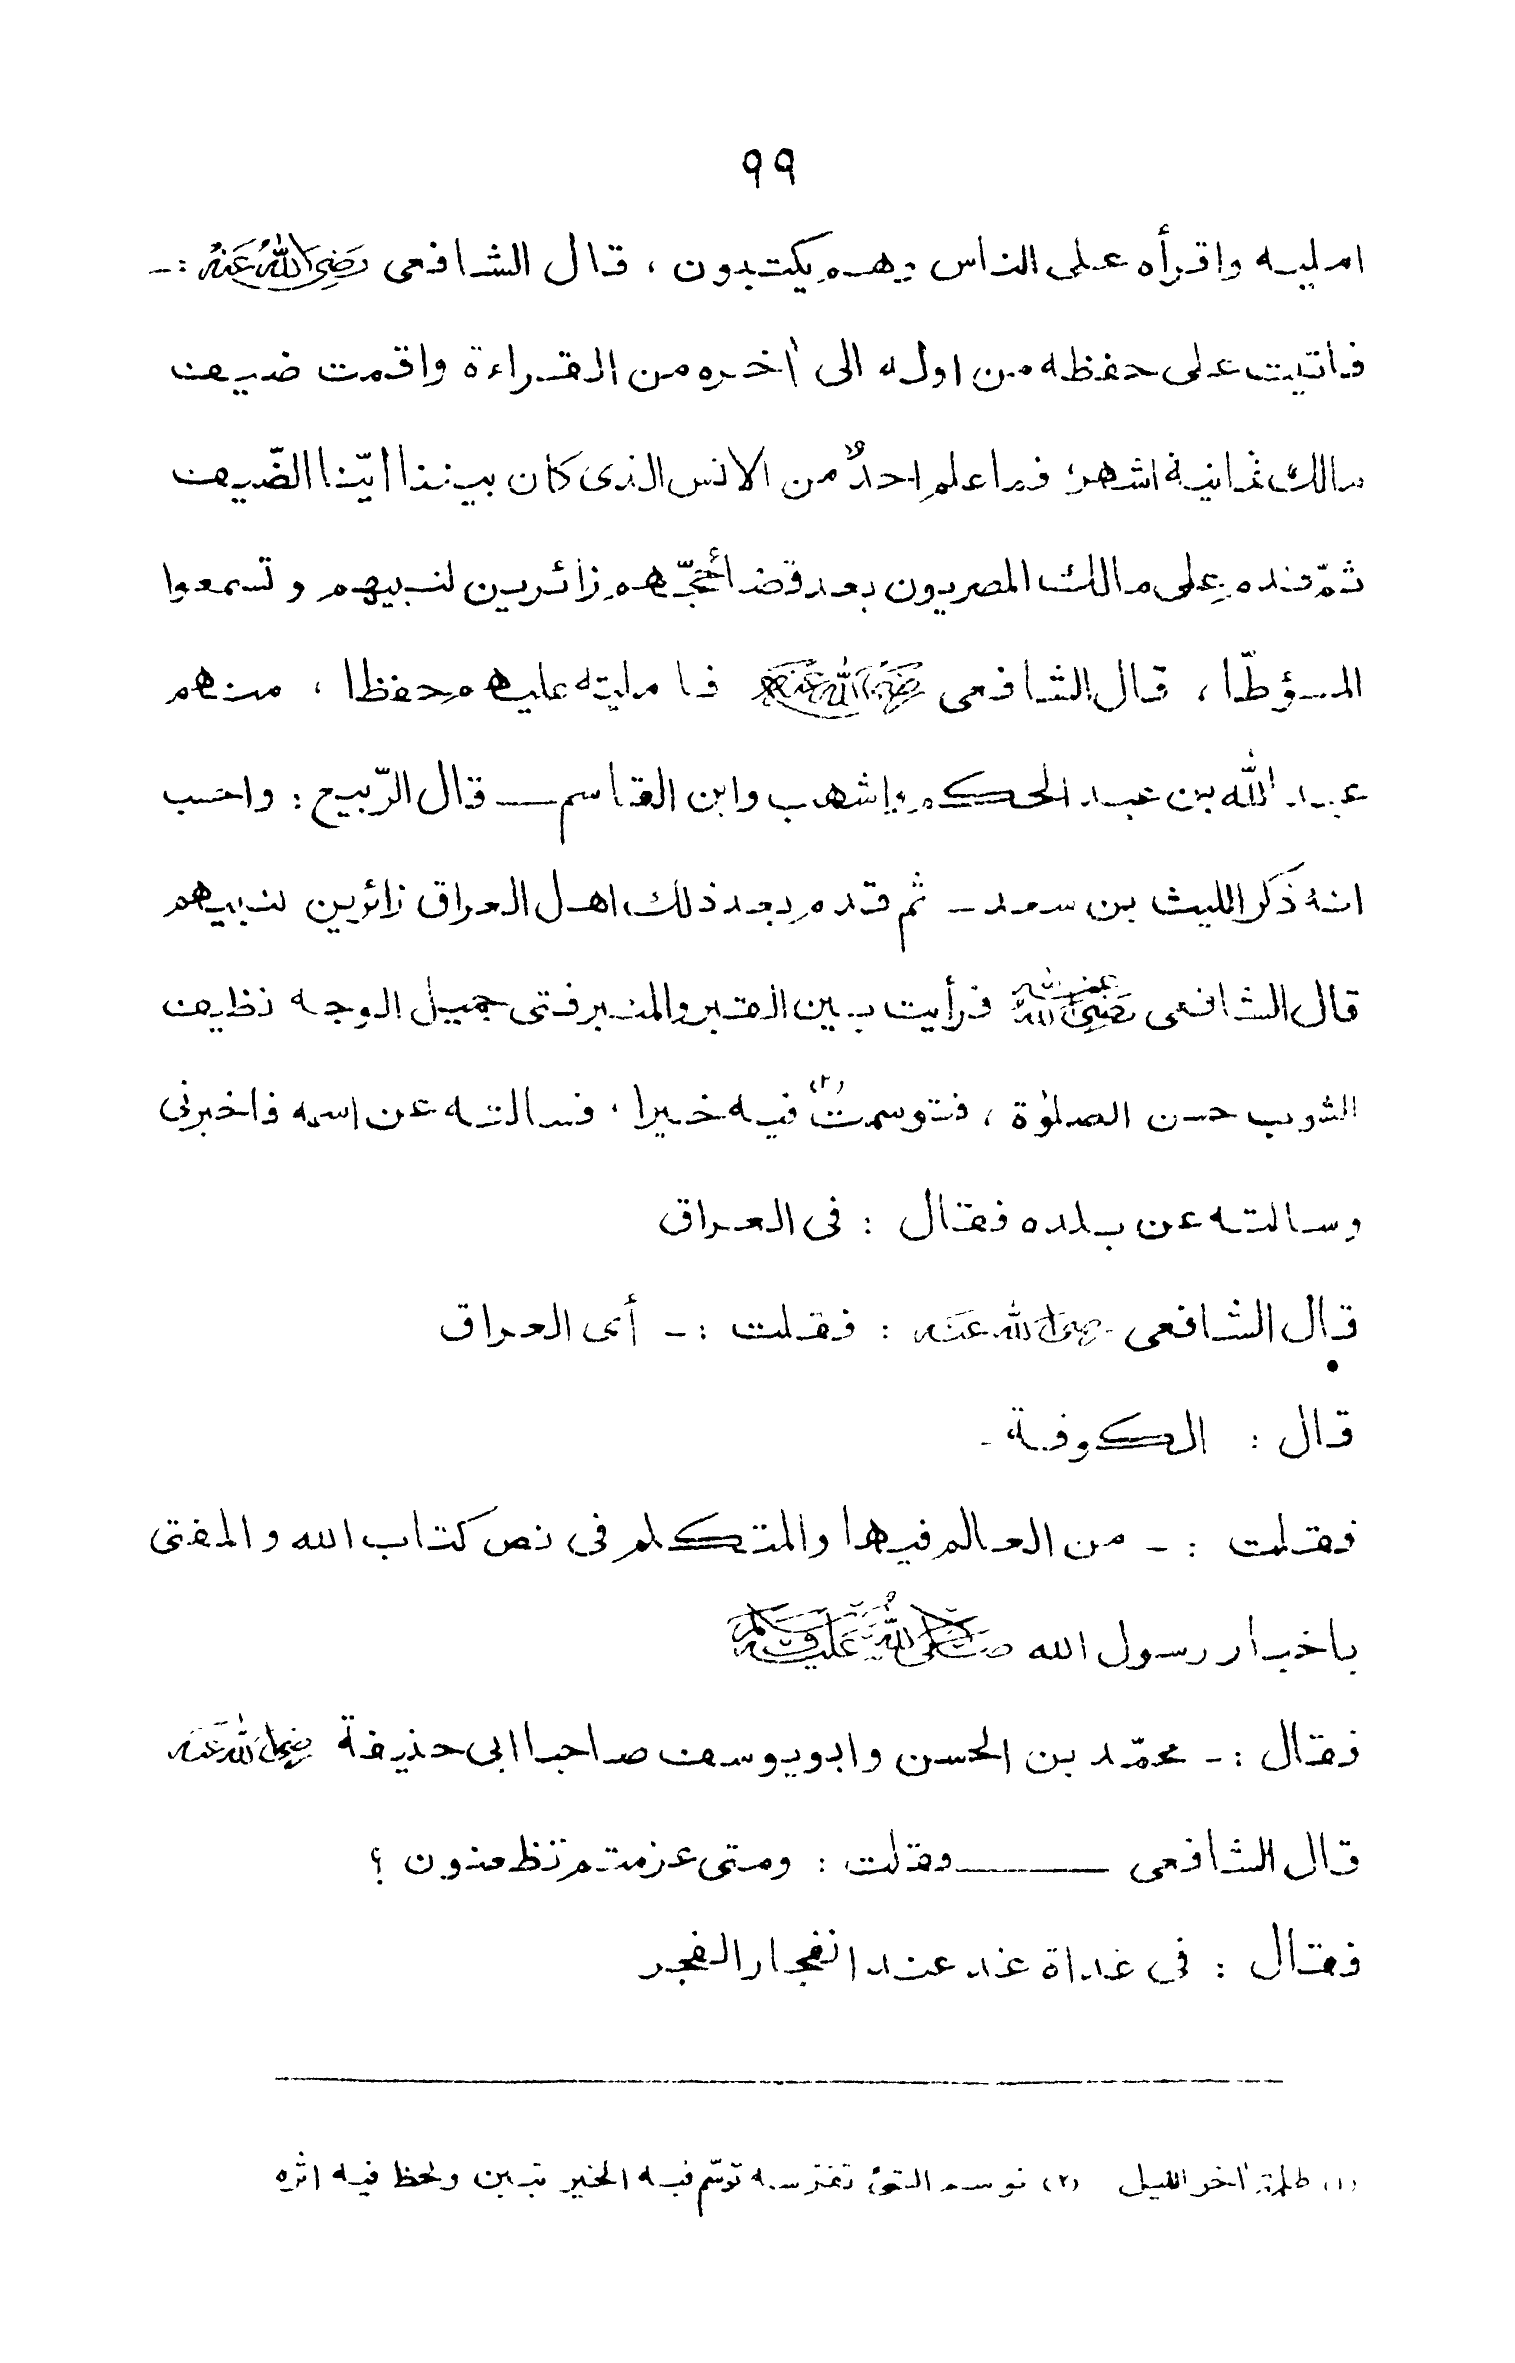 ٩٩
امليه واقرأه على الناس وهم يكتبون ، قال الشافعى رَضِىَ اللهُ عَنهُ :ـ
فاتيت على حفظه من اوله الى اٰخره من القراءة واقمت ضيف
مالك ثمانية اشهر فما علم احدٌ من الانس الذى كان بيننا ايّنا الضّيف
ثمّ قدم على مالك المصريون بعد قضا أحجّهم زائرين لنبيهم وتسمعوا
المؤطّا ، قال الشافعى رَضِىَ اللهُ عَنهُ فامليته عليهم حفظا ، منهم
عبد الله بن عبد الحكم واشهب وابن القاسم ــ قال الرّبيع : واحسب
انه ذكر الليث بن سعد ـ ثم قدم بعد ذلك اهل العراق زائرين لنبيهم
قال الشافعى رَضِىَ اللهُ عنه فرأيت بين القبر والمنبر فتى جميل الوجه نظيف
الثوب حسن الصلوٰة ، فتوسمتُ (٢) فيه خيرا ، فسالته عن اسمه فاخبرنى
وسالته عن بلده فقال : فى العراق
قال الشافعى رضى الله عنه : فقلت :ـ أى العراق
قال : الكوفة ـ
فقلت :ـ من العالم فيها والمتكلم فى نص كتاب الله والمفتى
باخبار رسول الله صَلَّى اللهُ عَلَيهِ وَسَلَّمَ
فقال :ـ محمّد بن الحسن وابويوسف صاحبا ابى حنيفة رضى الله عنه
قال الشافعى ــــــ وقلت : ومتى عزمتم تظعنون ؟
فقال : فى غداة غد عند انفجار الفجر
(١) ظلمة اٰخر الليل (٢) توسم الشئ تفرسه توسّم فيه الخير تبين ولحظ فيه اثره